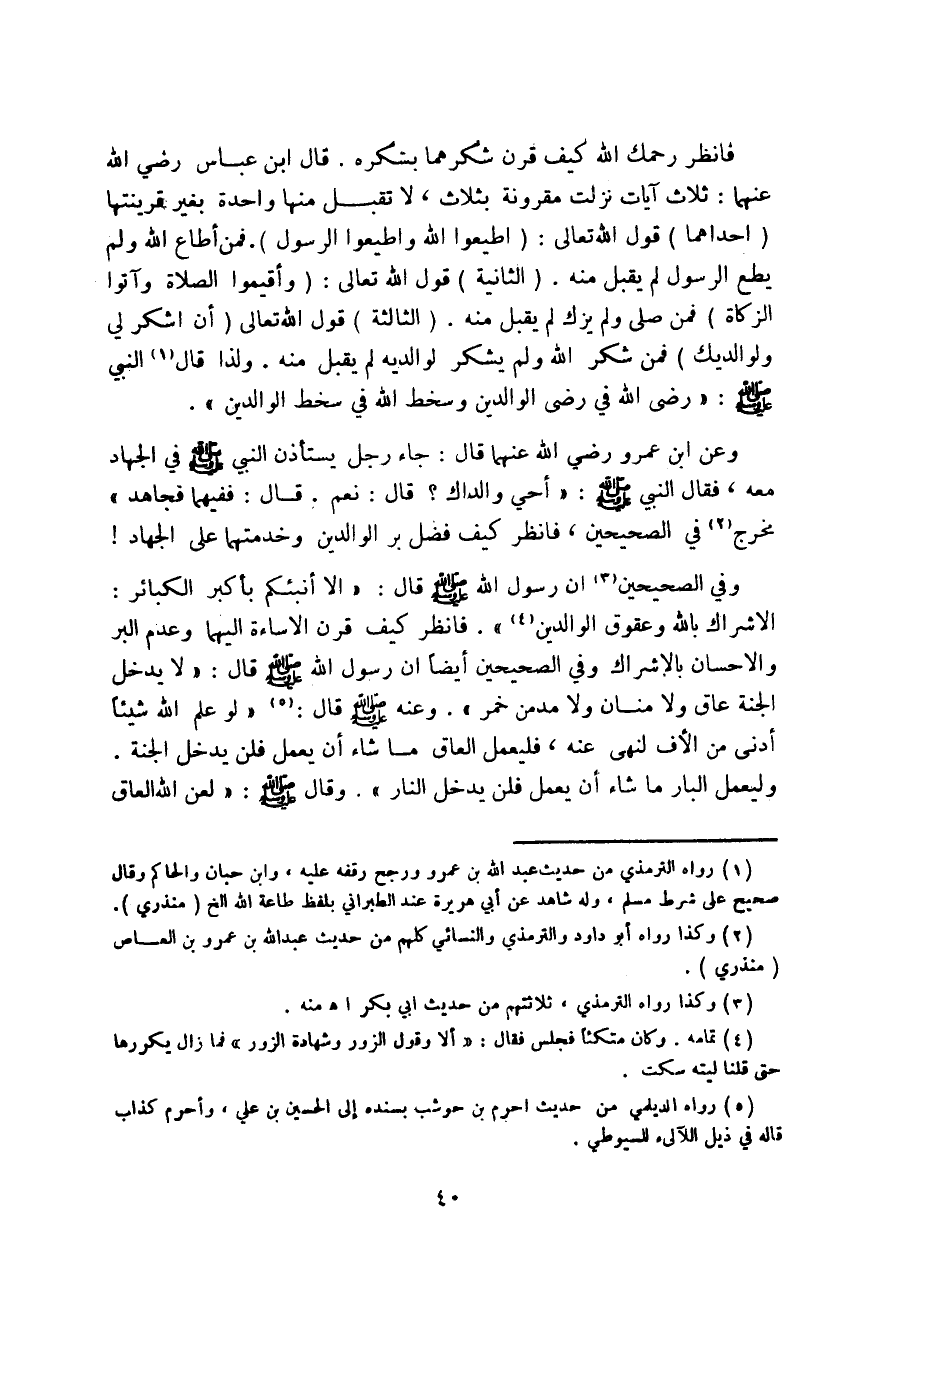 فانظر رحمك الله كيف قرن شكرهما بشكره . قال ابن عبـاس رضي الله
عنهما : ثلاث آيات نزلت مقرونة بثلاث ، لا تقبـــل منها واحدة بغير قرينتها
( احداهما ) قول الله تعالى : ( اطيعوا الله واطيعوا الرسول ). فمن أطاع الله ولم
يطع الرسول لم يقبل منه . ( الثانية ) قول الله تعالى : ( وأقيموا الصلاة وآتوا
الزكاة ) فمن صلى ولم يزك لم يقبل منه . ( الثالثة ) قول الله تعالى ( أن اشكر لي
ولوالديك ) فمن شكر الله ولم يشكر لوالديه لم يقبل منه . ولذا قال(١) النبي
ﷺ : « رضى الله في رضى الوالدين وسخط الله في سخط الوالدين » .
وعن ابن عمرو رضي الله عنهما قال : جاء رجل يستأذن النبي ﷺ في الجهاد
معه ، فقال النبي ﷺ : « أحي والداك ؟ قال : نعم . قــال : ففيهما فجاهد »
مخرج(٢) في الصحيحين ، فانظر كيف فضل بر الوالدين وخدمتهما على الجهاد !
وفي الصحيحين(٣) ان رسول الله ﷺ قال : « الا أنبئكم بأكبر الكبائر :
الاشراك بالله وعقوق الوالدين(٤) » . فانظر كيف قرن الاساءة اليهما وعدم البر
والاحسان بالإشراك وفي الصحيحين أيضاً ان رسول الله ﷺ قال : « لا يدخل
الجنة عاق ولا منــان ولا مدمن خمر » . وعنه ﷺ قال :(٥) « لو علم الله شيئاً
أدنى من الأف لنهى عنه ، فليعمل العاق مــا شاء أن يعمل فلن يدخل الجنة .
وليعمل البار ما شاء أن يعمل فلن يدخل النار » . وقال ﷺ : « لعن الله العاق
(١) رواه الترمذي من حديث عبد الله بن عمرو ورجح رقفه عليه ، وابن حبان والحاكم وقال
صحيح على شرط مسلم ، وله شاهد عن أبي هريرة عند الطبراني بلفظ طاعة الله الخ ( منذري ).
(٢) وكذا رواه أبو داود والترمذي والنسائي كلهم من حديث عبدالله بن عمرو بن العـــاص
( منذري ) .
(٣) وكذا رواه الترمذي ، ثلاثتهم من حديث ابي بكر ا ه منه .
(٤) تمامه . وكان متكئاً فجلس فقال : « ألا وقول الزور وشهادة الزور » فما زال يكررها
حتى قلنا ليته سكت .
(٥) رواه الديلمي من حديث احرم بن حوشب بسنده إلى الحسين بن علي ، وأحرم كذاب
قاله في ذيل اللآلىء للسيوطي .
٤٠